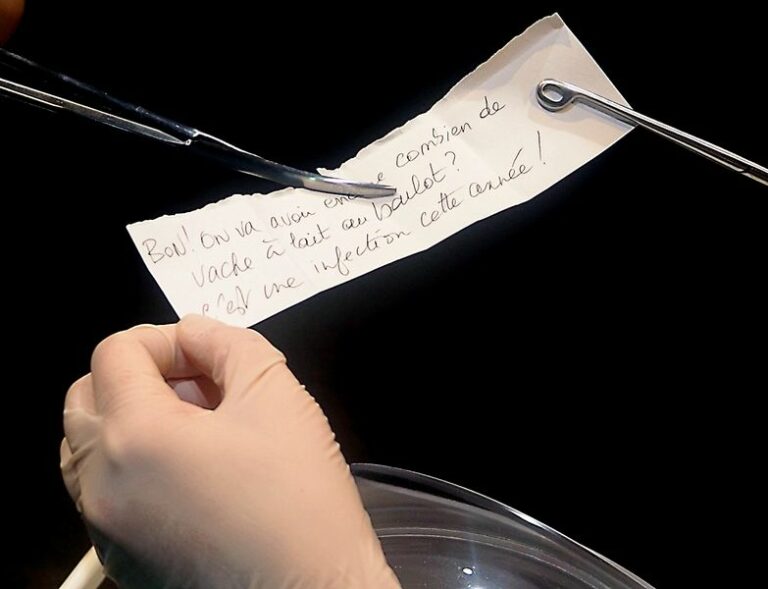 BON! ON va avoir encore combien de
vache à lait au boulot?
c'est une infection cette année!